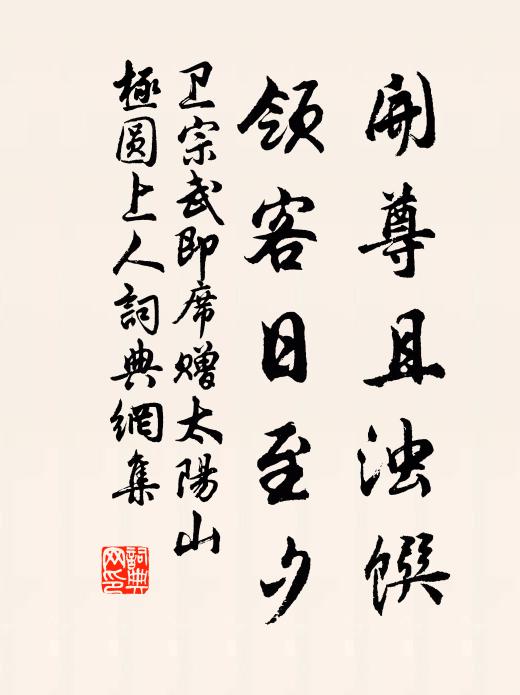 開尊且浊饌
領客日至夕
卫宗武即席赠太陽山
極圆上人詞典網集
詞典網印